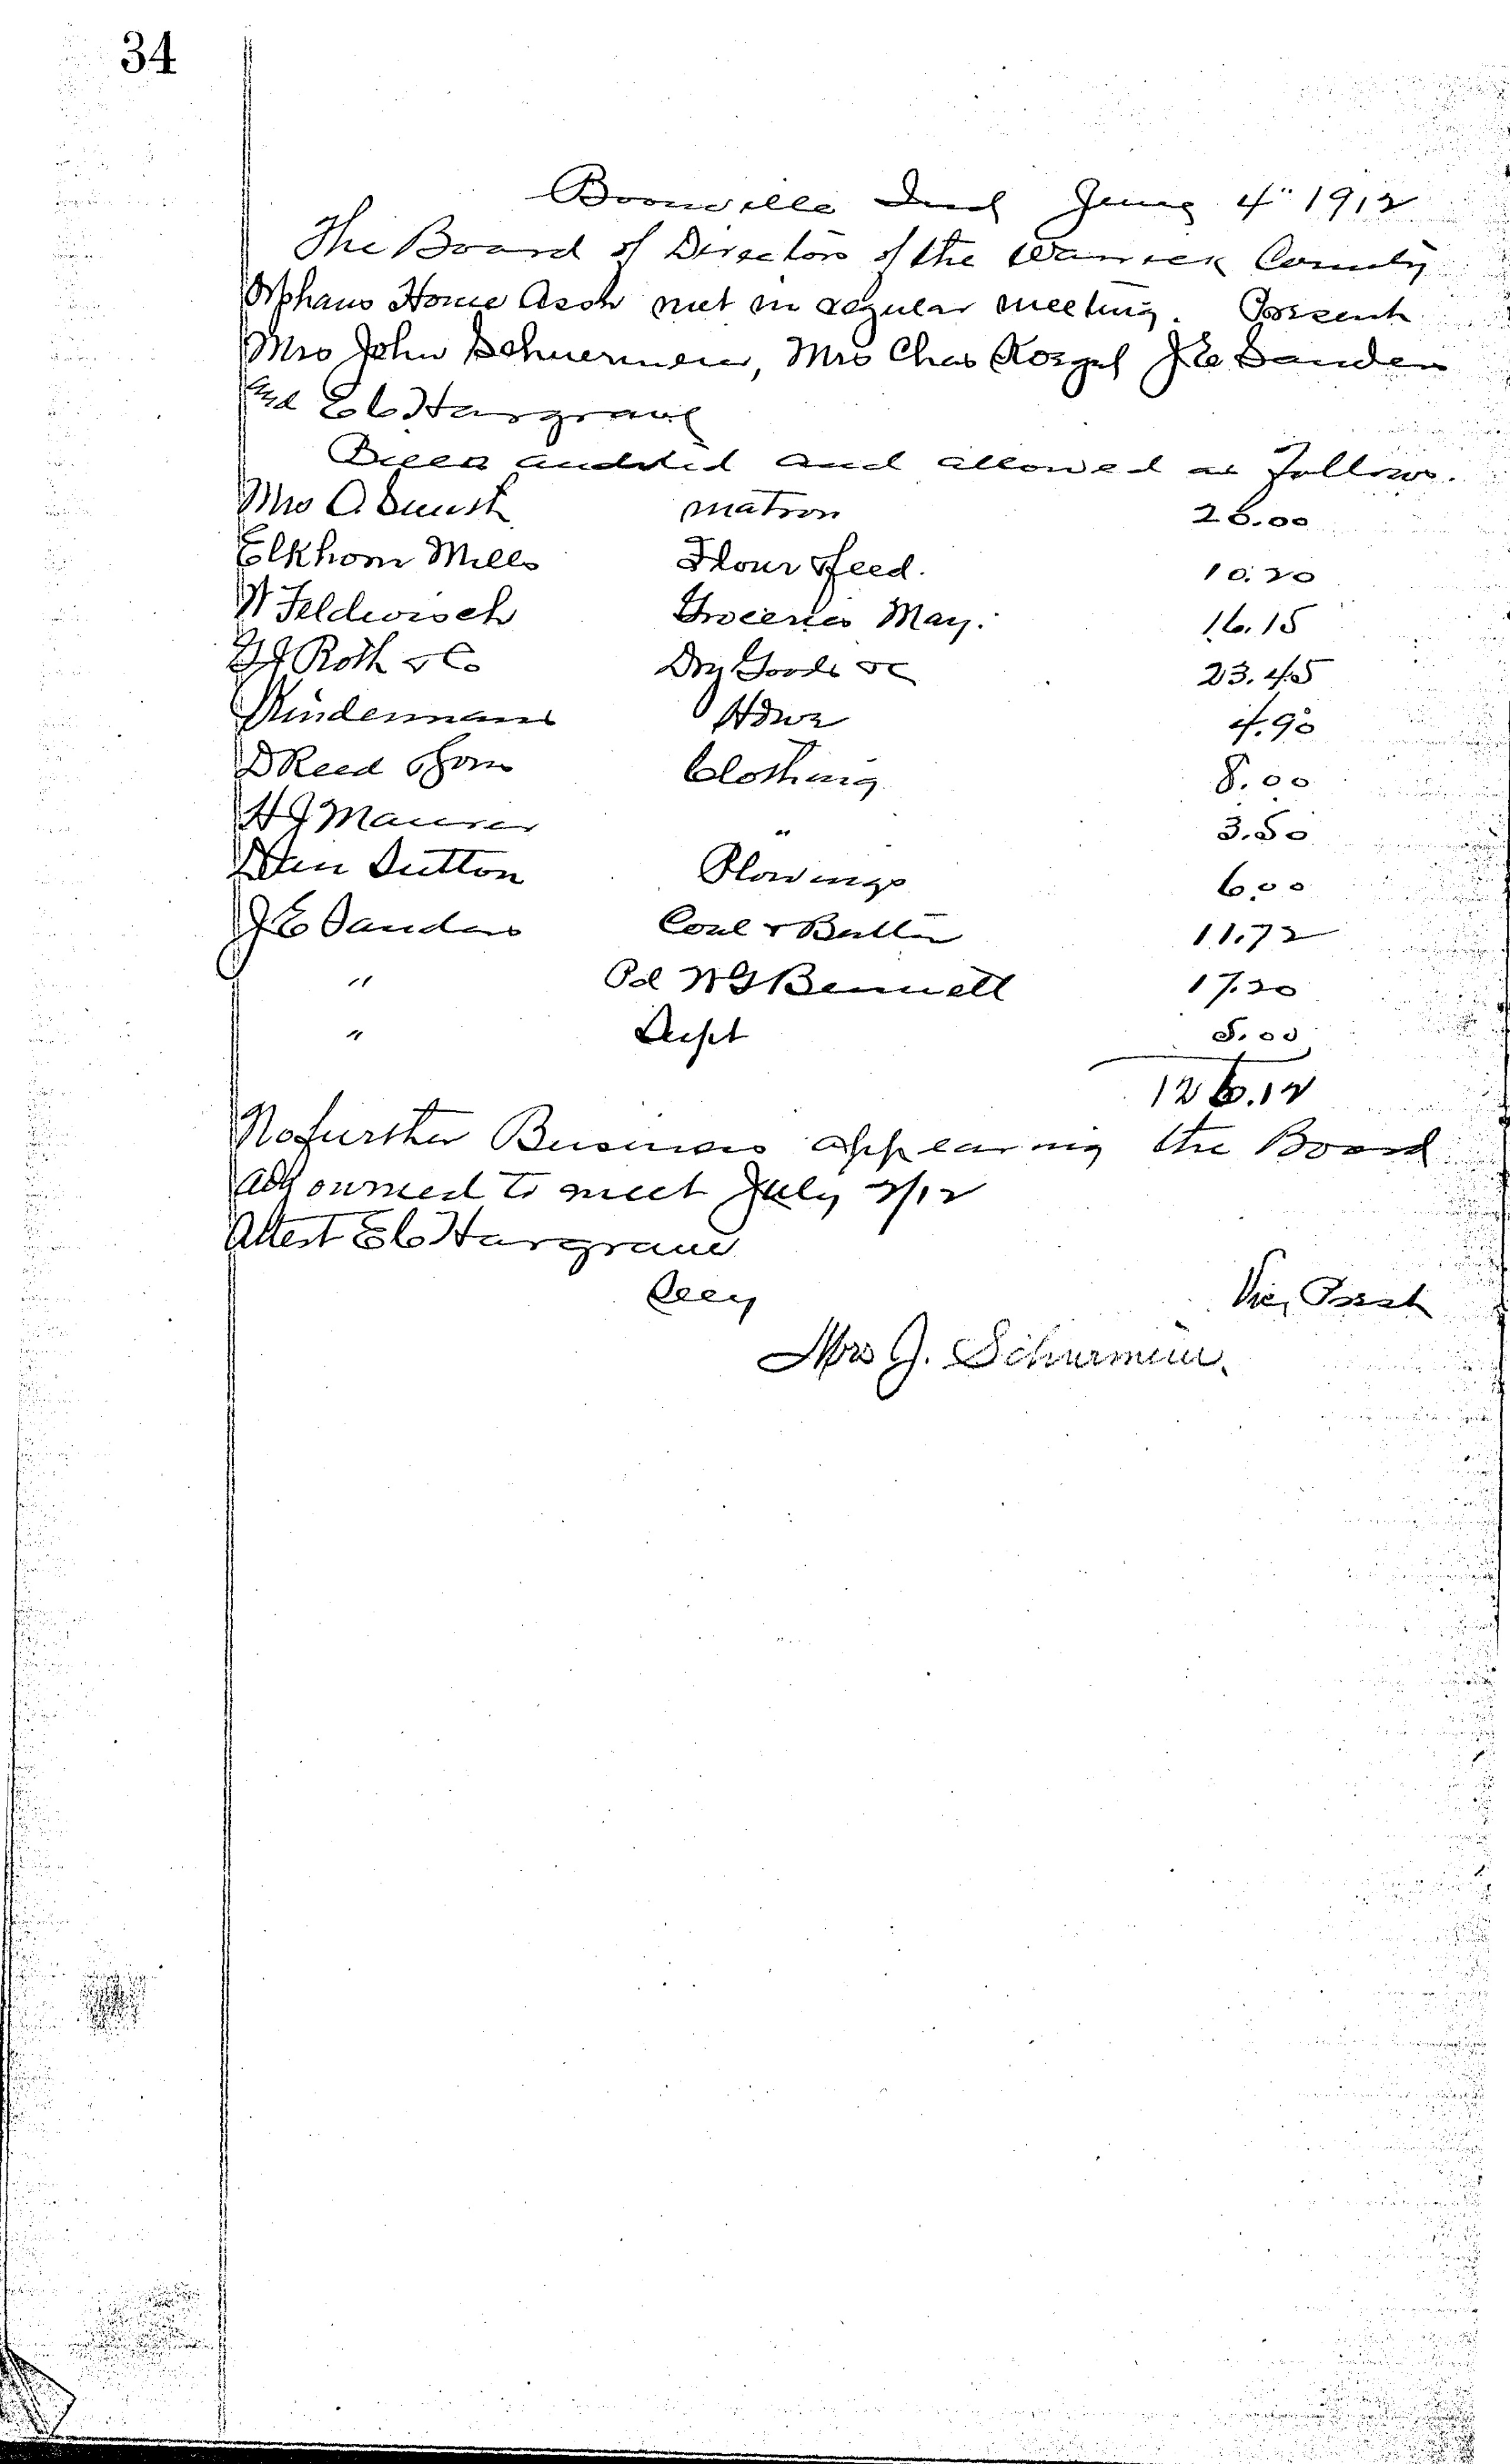 34
Boonville Ind June 4" 1912
The Board of Directors of the Warrick County
Orphans Home Assn met in regular meeting. Present
Mrs John Schuermeier, Mrs Chas J E Sanders
and E C Hargrave
Bills audited and allowed as follows.
Mrs A matron 20.00
Elkhorn Mills Flour & feed. 10.20
W Feldwisch Groceries May. 16.15
Roth & Co Dry Goods &c 23.45
Hindermann Hdwr 4.90
D Reed & Sons Clothing 8.00
H J Maurer " 3.50
Dan Sutton Plowing 6.00
J E Sanders Coal & Butter 11.72
" Pd W G Bennett 17.20
" Supt 5.00
126.12
No further Business appearing the Board
adjourned to meet July 2/12
Attest E C Hargrave
Secy Vice Prest
Mrs J. Schurmeier.